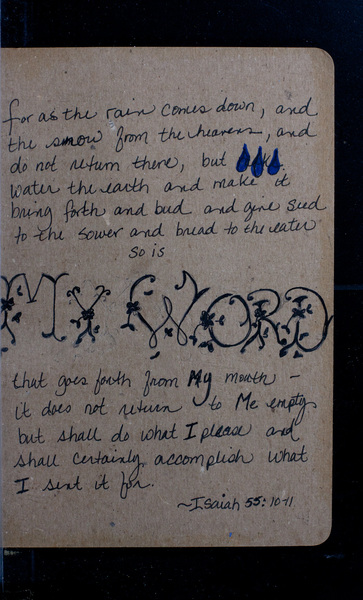 for as the rain comes down, and
the snow from the heavens, and
do not return there, but
water the earth and make it
bring forth and bud and give seed
to the sower and bread to the eater
so is
MY WORD
that goes forth from My mouth –
it does not return to Me empty
but shall do what I please and
shall certainly accomplish what
I sent it for.
~Isaiah 55:10-11